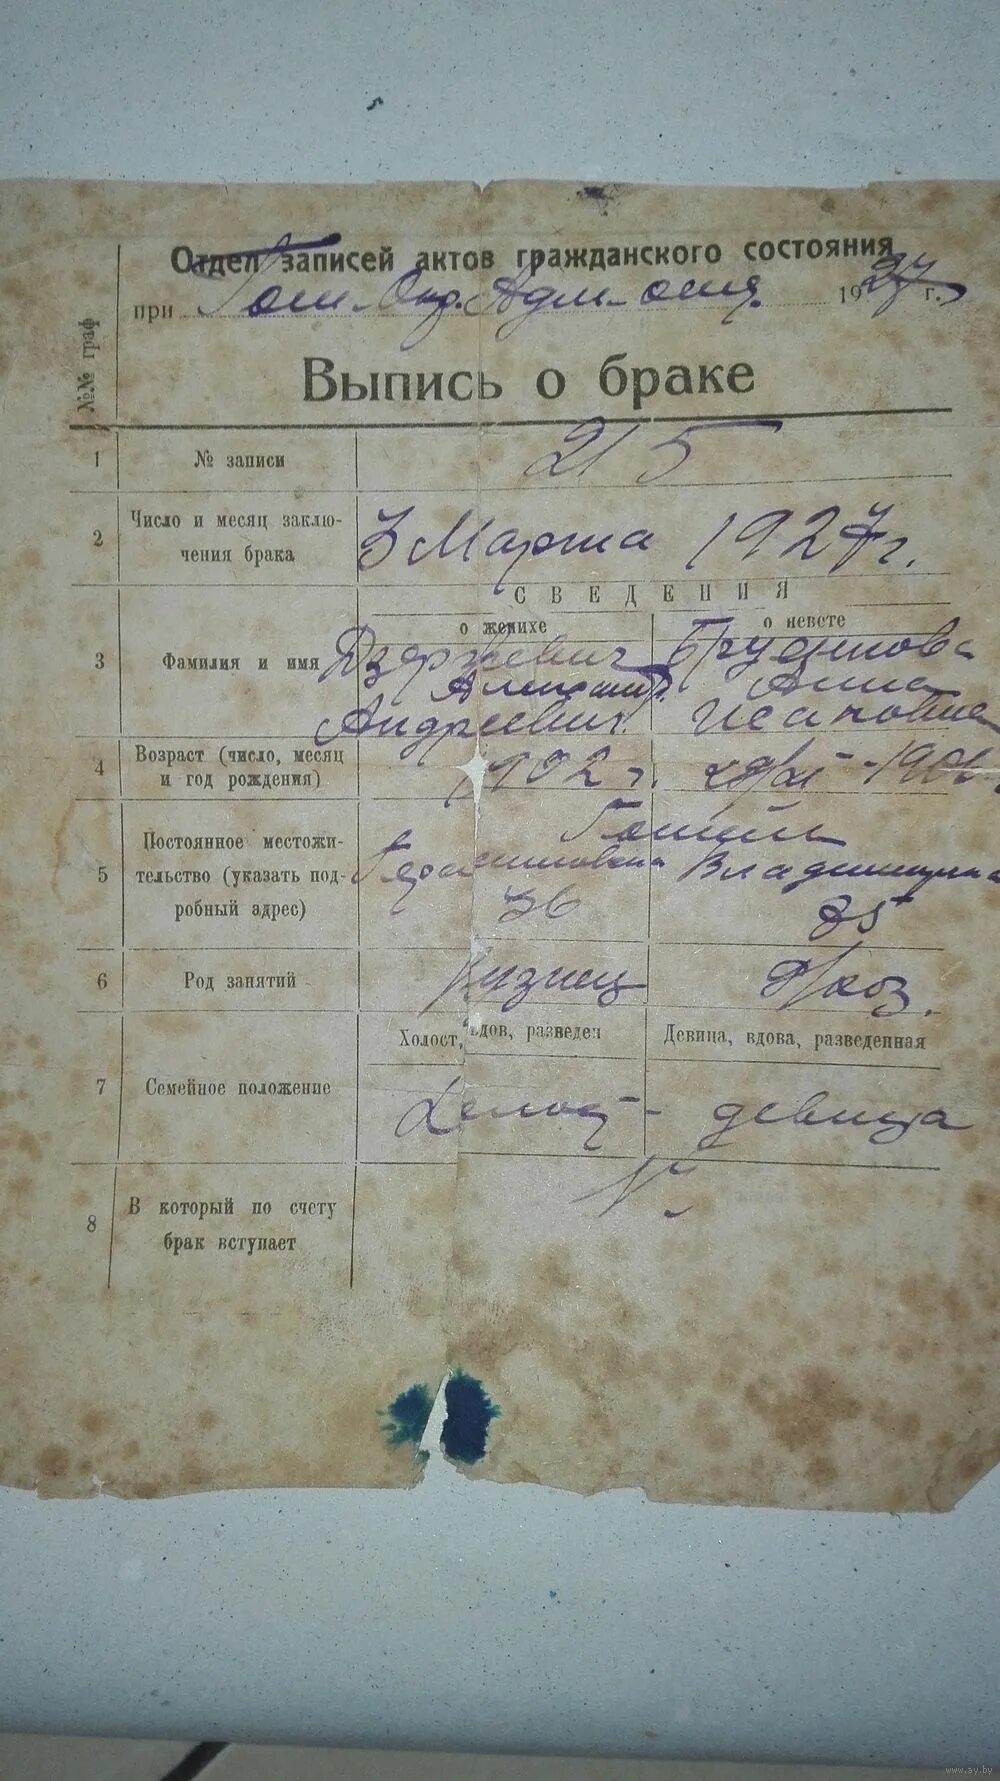 Отдел записей актов гражданского состояния
при Гом. Окр. Адм. 1927 г.
№№ граф
Выпись о браке
1 № записи 215
2 Число и месяц заклю-
чения брака 3 Марта 1927 г.
СВЕДЕНИЯ
о женихе о невсте
3 Фамилия и имя Дзержевич
Александр
Андреевич. Анна
4 Возраст (число, месяц
и год рождения) 1902 г.
5 Постоянное местожи-
тельство (указать под-
робный адрес) 36
6 Род занятий Кузнец
Холост, вдов, разведен Девица, вдова, разведенная
7 Семейное положение Холост - девица
8 В который по счету
брак вступает
www.ay.by